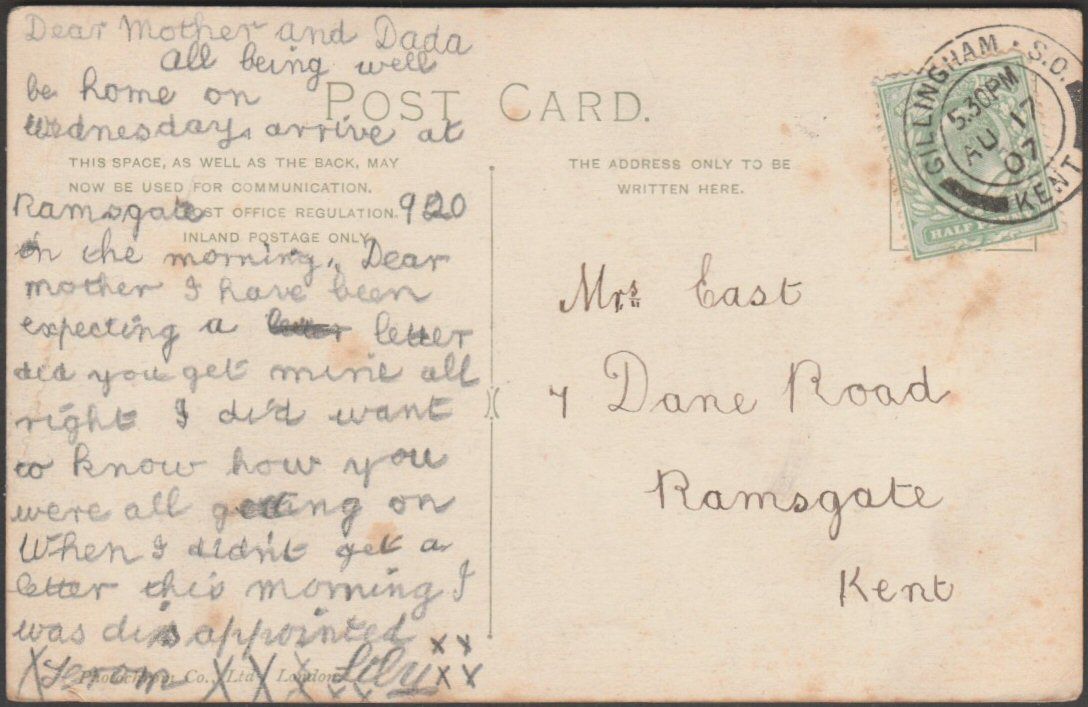 Dear Mother and Dada
all being well
be home on
Wednesday. arrive at
Ramsgate 920
in the morning. Dear
mother I have been
expecting a letter
did you get mine all
right I did want
to know how you
were all getting on
When I didn't get a
letter this morning I
was disappointed x x
X From X X X Lily x x
POST CARD.
THIS SPACE, AS WELL AS THE BACK, MAY
NOW BE USED FOR COMMUNICATION.
POST OFFICE REGULATION.
INLAND POSTAGE ONLY
Photochrom Co., Ltd London
THE ADDRESS ONLY TO BE
WRITTEN HERE.
GILLINGHAM · S.O.
KENT
5.30PM
AU 17
07
HALF
Mrs East
7 Dane Road
Ramsgate
Kent